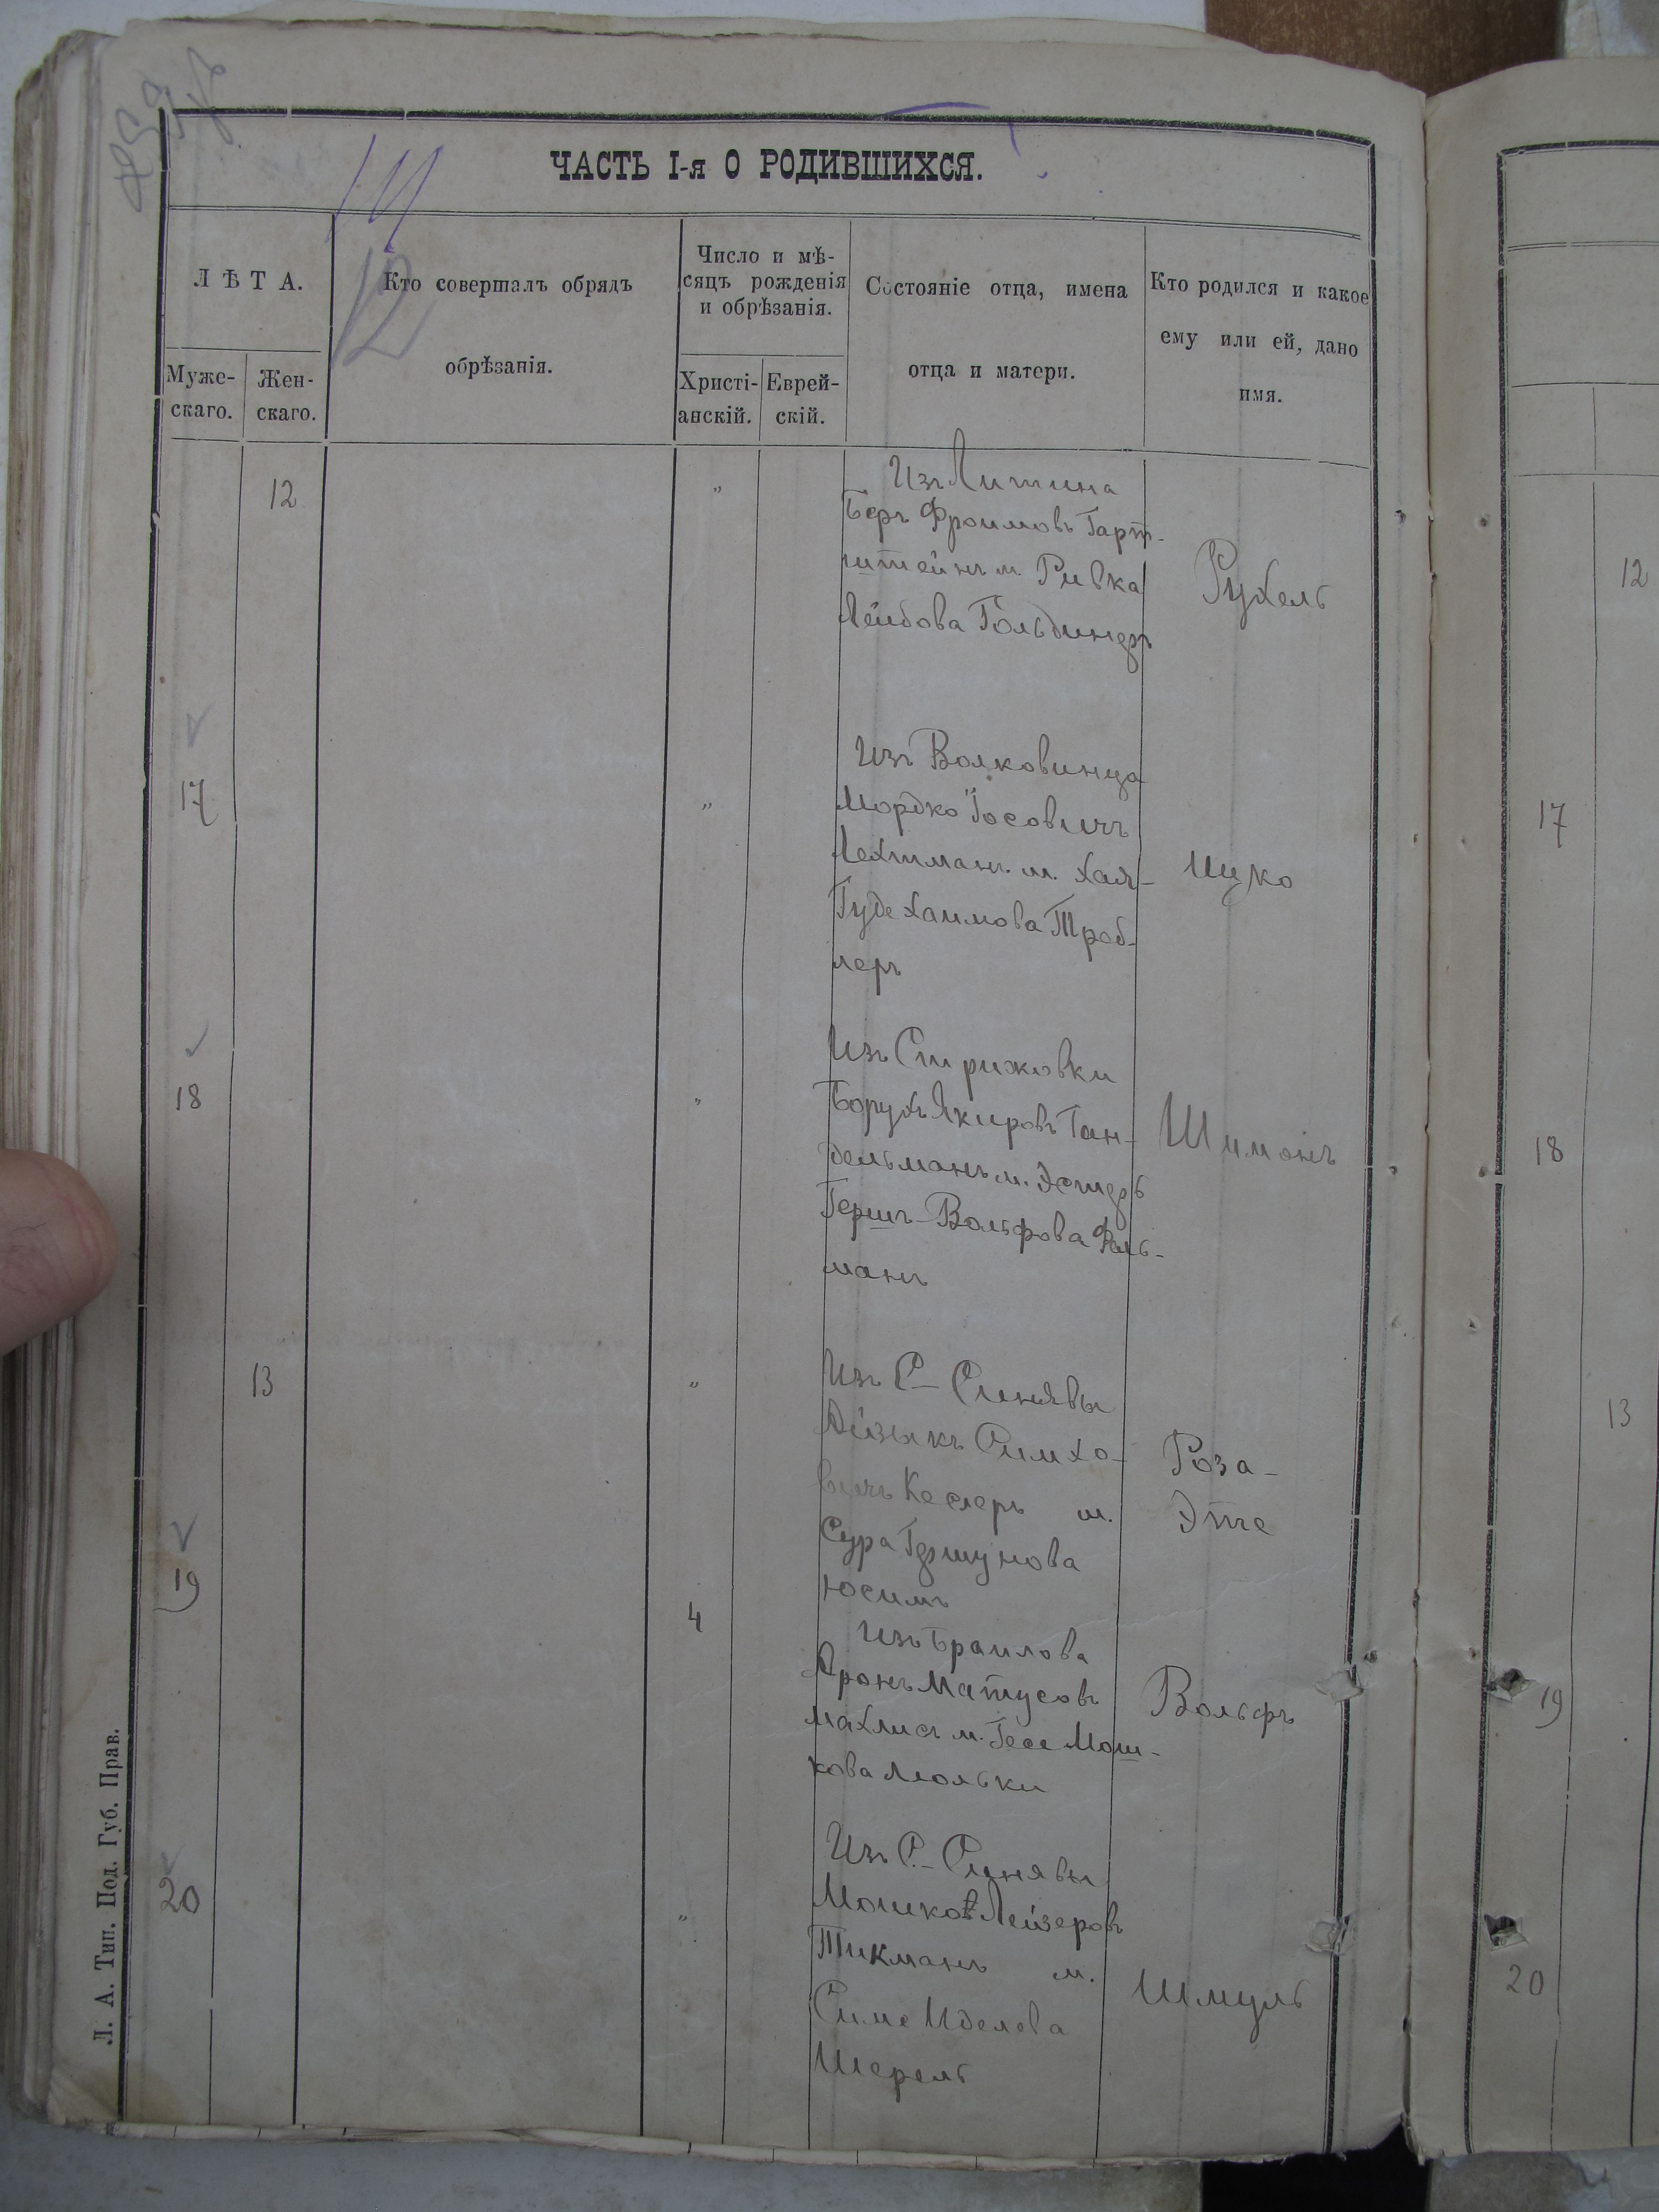 ЧАСТЬ I-я О РОДИВШИХСЯ.
ЛѢТА.
Муже-
скаго.
Жен-
скаго.
Кто совершалъ обрядъ
обрѣзанія.
Число и мѣ-
сяцъ рожденія
и обрѣзанія.
Христі-
анскій.
Еврей-
скій.
Состояніе отца, имена
отца и матери.
Кто родился и какое
ему или ей, дано
имя.
12
12
„
Изъ Литина
Беръ Фроимовъ Гарт-
штейнъ м. Ривка
Лейбова Гольдинеръ
Рухель
12
17
„
Изъ Волковинца
Мордко Іосовичъ
Лехтманъ м. Хая-
Гуде Хаимова Троб-
леръ
Ицко
17
18
„
Изъ Стрижовки
Борухъ Якировъ Ган-
дельманъ м. Эстеръ
Гершъ-Вольфова Фель-
манъ
Шимонъ
18
13
„
Изъ С-Синявы
Айзыкъ Симхо-
вичъ Кеслеръ м.
Сура Гершунова
Юсимъ
Роза-
Этте
13
19
4
Изъ Браилова
Аронъ Матусовъ
Махлисъ м. Гесе Мош-
кова Люльки
Вольфъ
19
20
„
Изъ С.-Синявы
Мошко Лейзеровъ
Тикманъ м.
Симе Иделева
Шерель
Шмуль
20
Л. А. Тип. Под. Губ. Прав.